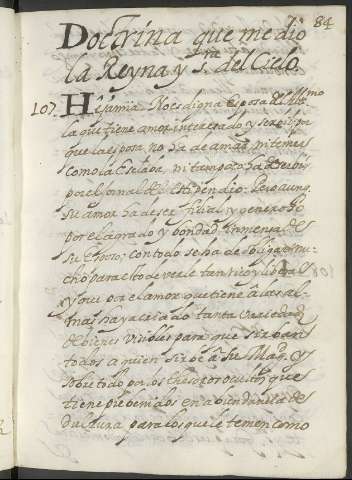 84
Doctrina que me dio
la Reyna y S.ra del Cielo
107. Hija mia. No es digna esposa del Alt.mo
la que tiene amor interesado y servil por
que la esposa no ha de amar, ni temer
como la Esclava, ni tampoco ha de servir
por el jornal del Estipendio. Pero aunq.
su amor ha de ser filial y generoso
por el agrado y bondad inmensa de
su Esposo; con todo se ha de obligar mu-
cho para esto de verle tan rico y liberal
y que por el amor que tiene à las al-
mas haya criado tanta variedad
de bienes visibles para que sirban
todos a quien sirve à su Mag.d y
sobre todo por los thesoros ocultos que
tiene prebenidos en abundancia de
dulçura para los que le temen como